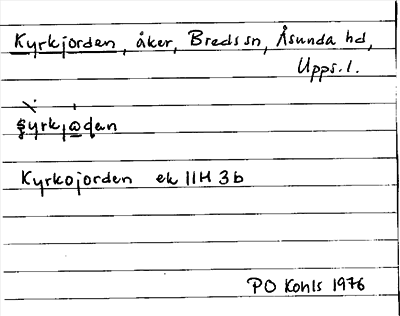 Kyrkjorden, åker, Breds sn, Åsunda hd,
Upps. l.
Kyrkojorden ek 11H 3b
PO Kohls 1976